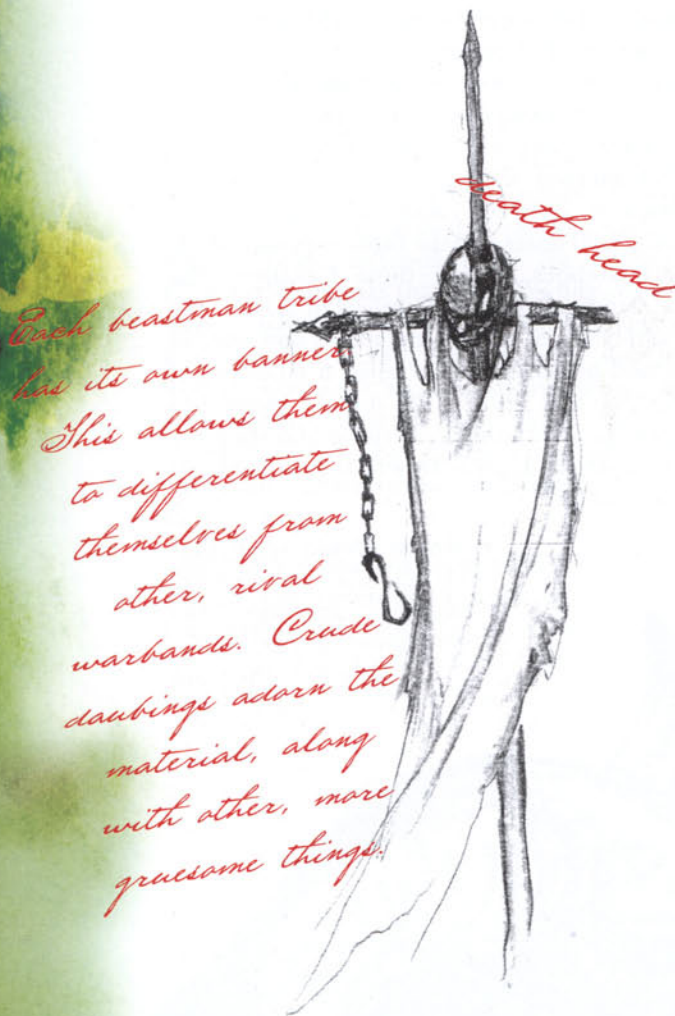 death head
Each beastman tribe
has its own banner.
This allows them
to differentiate
themselves from
other, rival
warbands. Crude
daubings adorn the
material, along
with other, more
gruesome things.